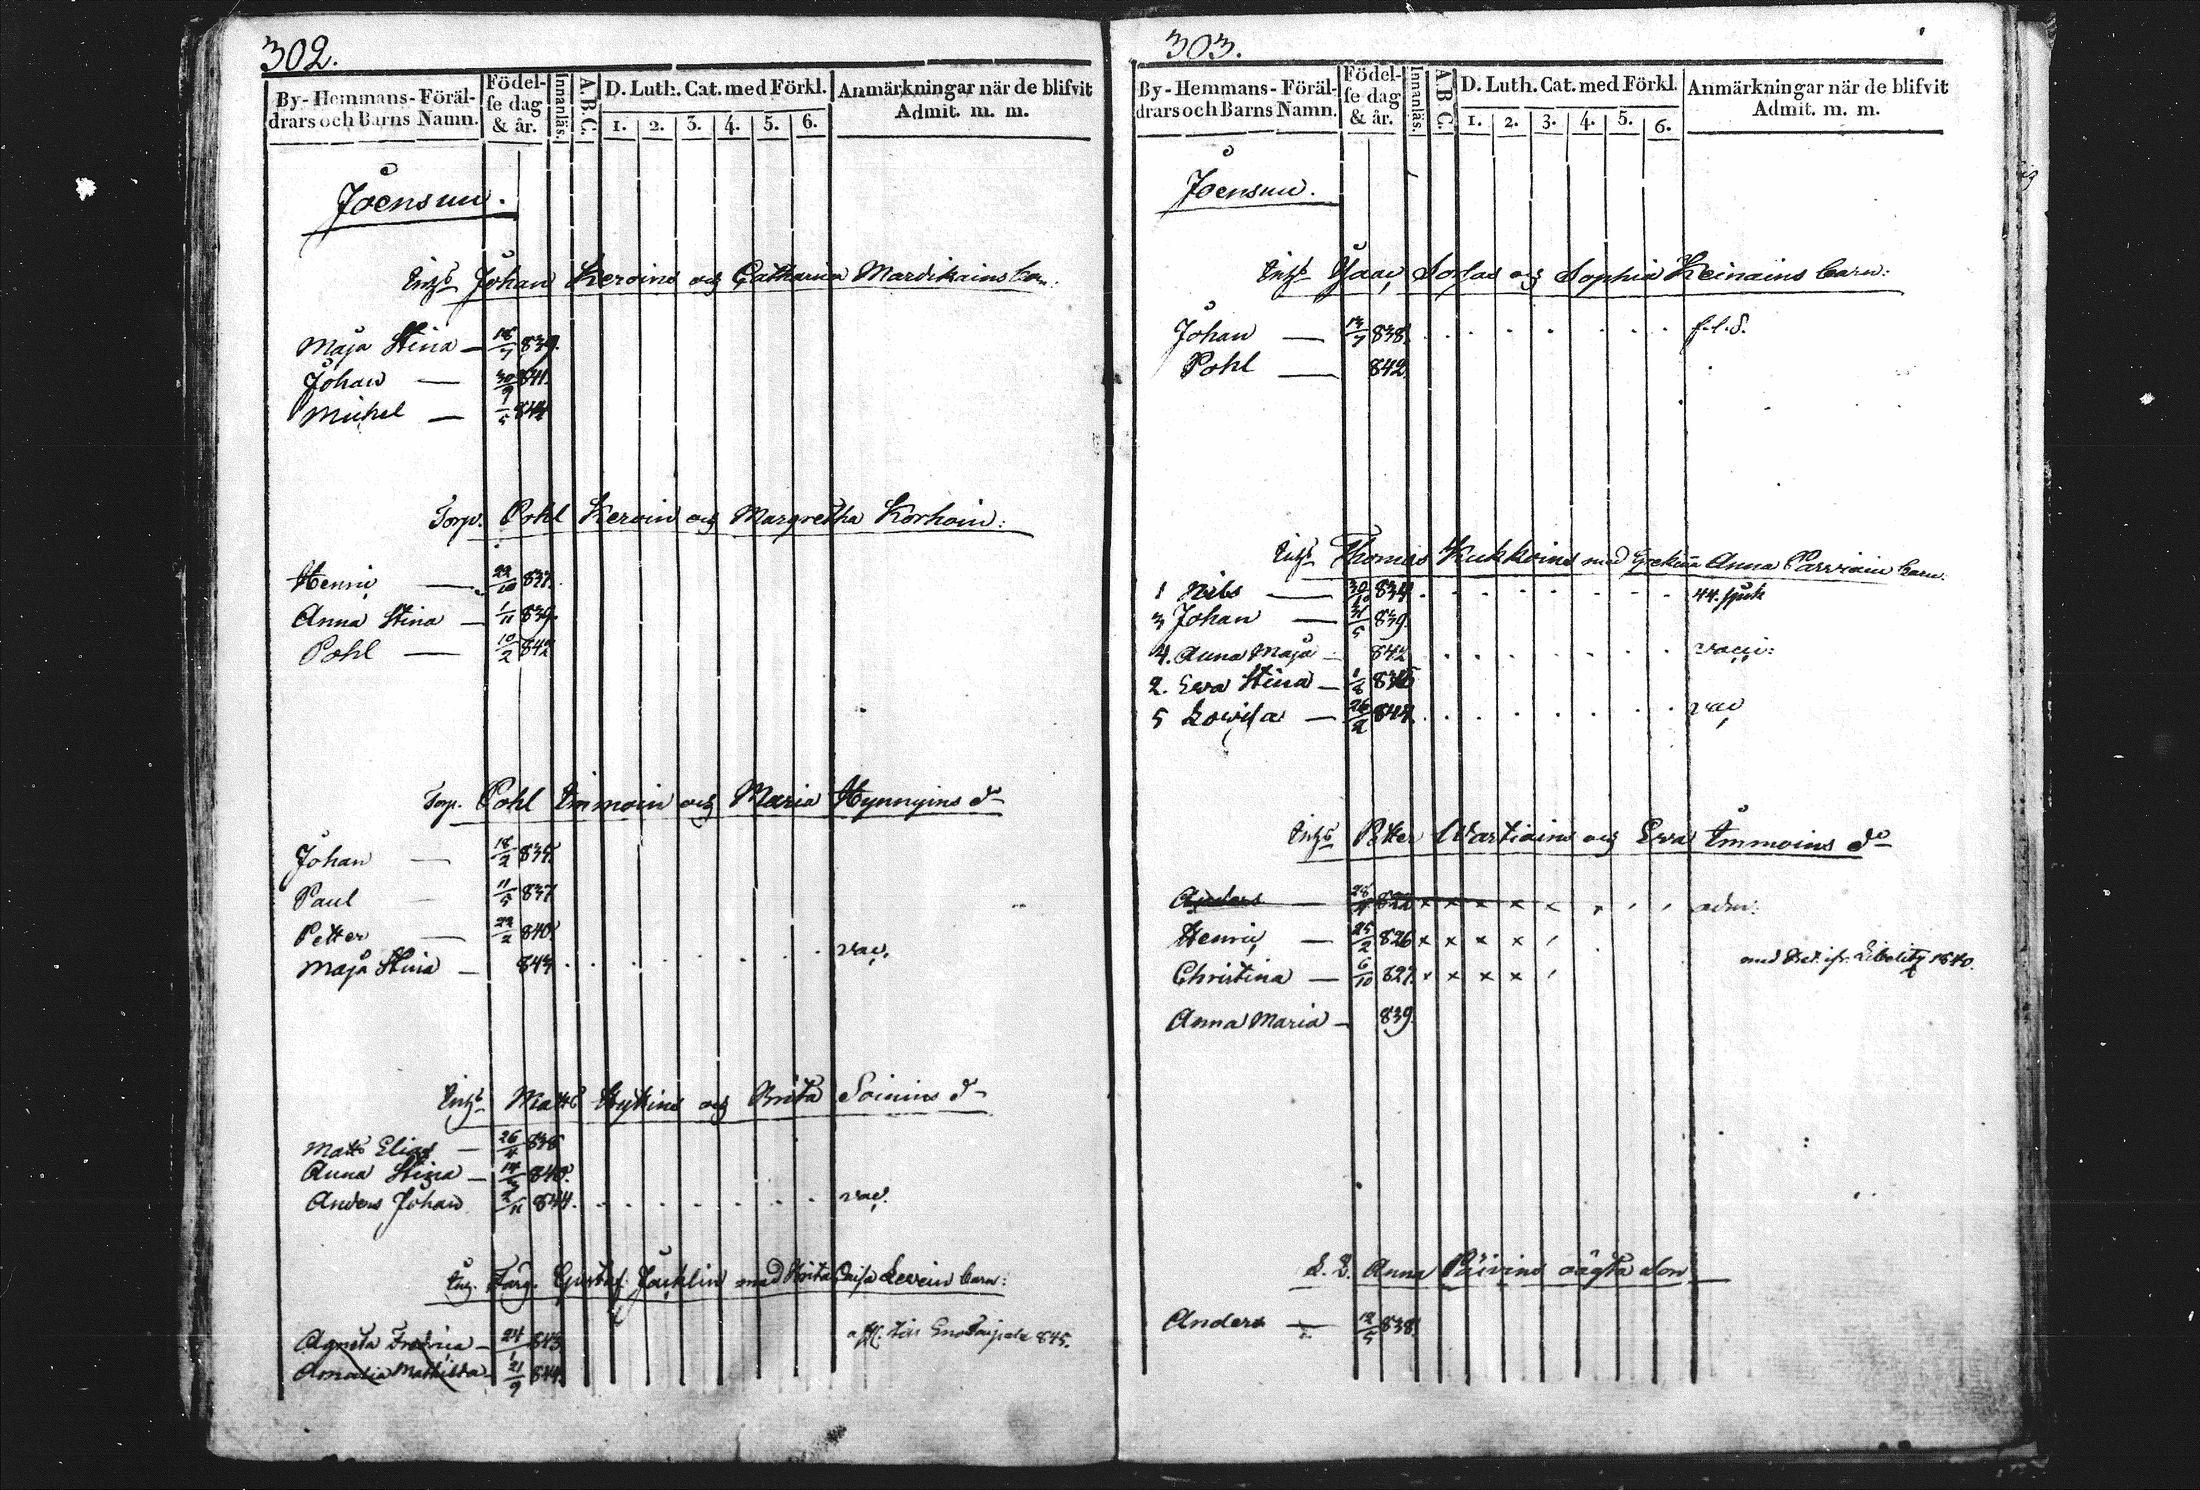 302.
By-Hemmans-Föräl-
drars och Barns Namn.
Födel-
se dag
& år.
Innanläs.
A.B.C.
D. Luth. Cat. med Förkl.
1. 2. 3. 4. 5. 6.
Anmärkningar när de blifvit
Admit. m. m.
Joensuu.
Johan Keroins och Catharina Mardikains
Maja Stina — 18/7 839.
Johan — 30/9 841.
Michel — 1/5 844
Torp. Pohl Keroin och Margretha Korhoin:
Henric — 22/10 837.
Anna Stina — 1/11 839.
Pohl — 10/2 842
Torp. Pohl Immoin och Maria Hynnyins do
Johan — 18/2 835.
Paul — 11/5 837
Petter — 22/2 840.
Maja Stina — 843 vac.
Matts Hykins och Brita Soinins do
Matts Elias — 26/4 838
Anna Stina — 14/3 840.
Anders Johan 2/11 844. vac.
Färg. Gustaf Jacklin med Brita Caisa Levein barn:
Agneta Fredrica — 24/1 843
Amalia Mathilda 21/9 844. 845.
303.
By-Hemmans-Föräl-
drars och Barns Namn.
Födel-
se dag
& år.
Innanläs.
A.B.C.
D. Luth. Cat. med Förkl.
1. 2. 3. 4. 5. 6.
Anmärkningar när de blifvit
Admit. m. m.
Joensuu.
och Sophia Keinains barn:
Johan — 13/7 838. f.l.8.
Pohl — 842.
Thomas Kukkoins med Anna Parviain barn.
1 Nils — 30/10 834. 44.
3 Johan — 31/5 839.
4. Anna Maja — 842 vacci:
2. Ewa Stina — 836
5 Lowisa — 26/2 844. vac
Petter Wartiains och Ewa Immoins do
Anders — 28/4 822 x x x x adm.
Henric — 25/2 826 x x x x
Christina — 6/10 827. x x x x 1840.
Anna Maria — 839.
Anna Päivins oägta Son
Anders — 12/5 838.